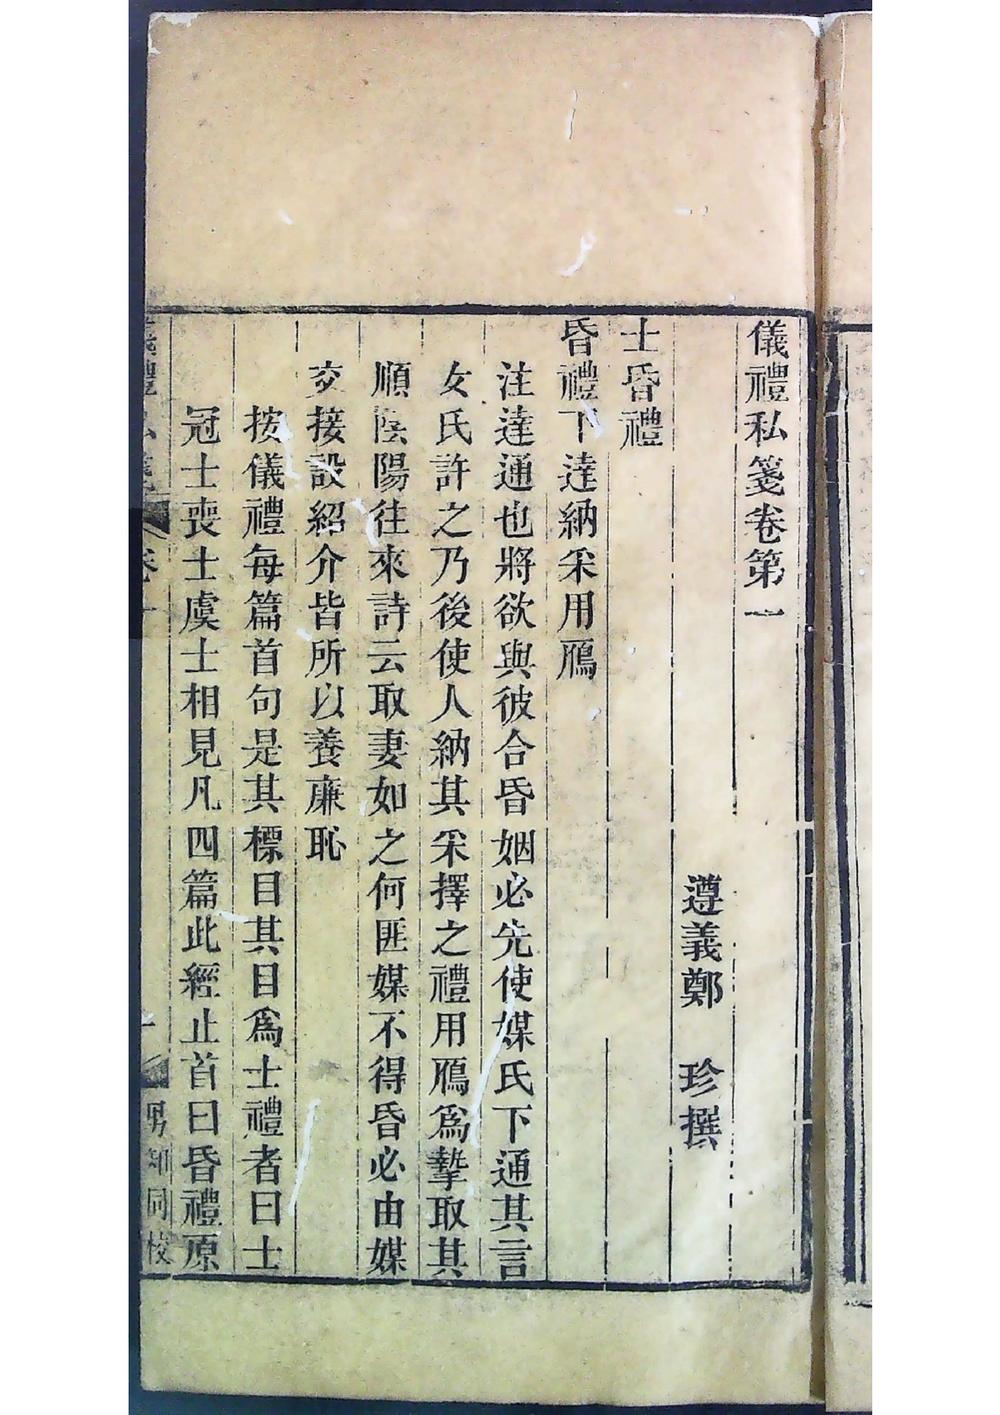 儀禮私箋卷第一
遵義鄭　珍撰
士昏禮
昏禮下達納采用鴈
注達通也將欲與彼合昏姻必先使媒氏下通其言
女氏許之乃後使人納其采擇之禮用鴈爲摯取其
順陰陽往來詩云取妻如之何匪媒不得昏必由媒
交接設紹介皆所以養廉恥
按儀禮每篇首句是其標目其目爲士禮者曰士
冠士喪士虞士相見凡四篇此經止首曰昏禮原
儀禮私箋 卷一 一 男知同校